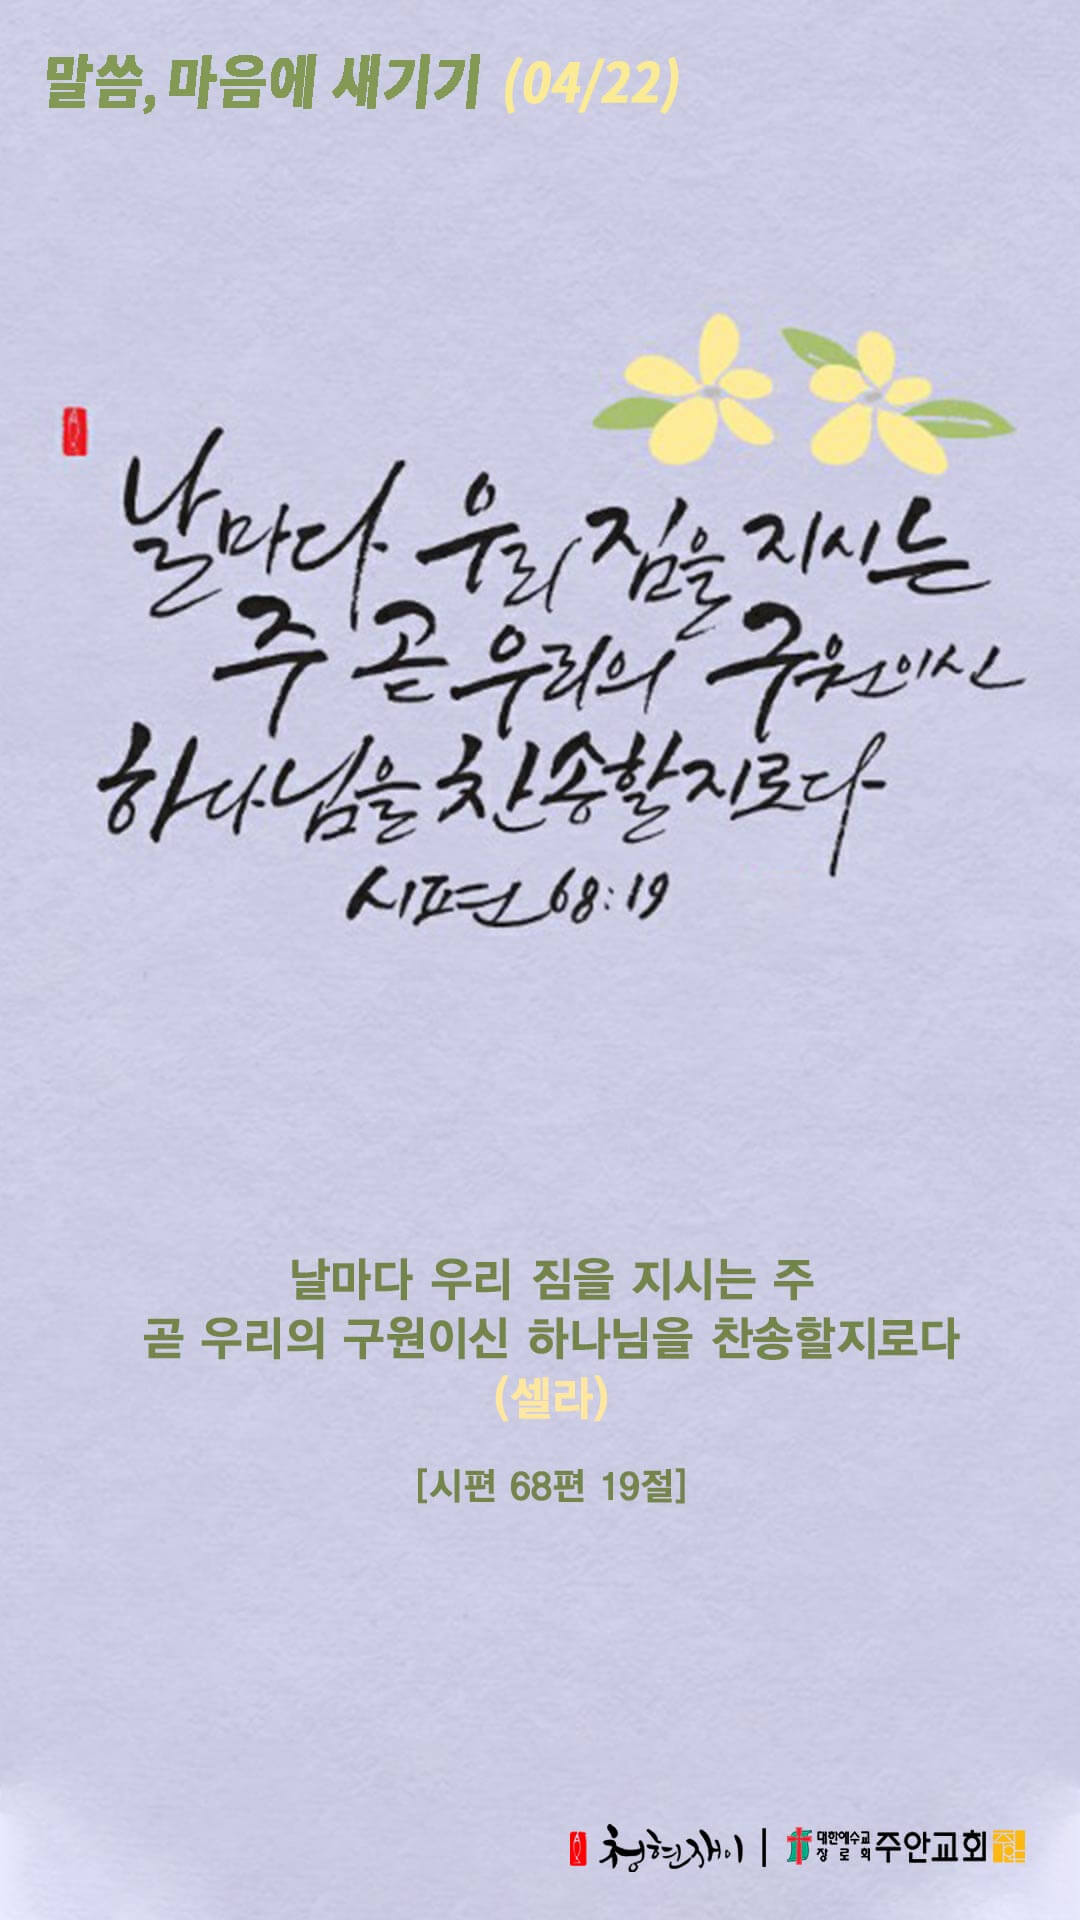 말씀, 마음에 새기기 (04/22)
날마다 우리 짐을 지시는
주 곧 우리의 구원이신
하나님을 찬송할지로다
시편 68:19
날마다 우리 짐을 지시는 주
곧 우리의 구원이신 하나님을 찬송할지로다
(셀라)
[시편 68편 19절]
청현재이 | 대한예수교 장로회 주안교회